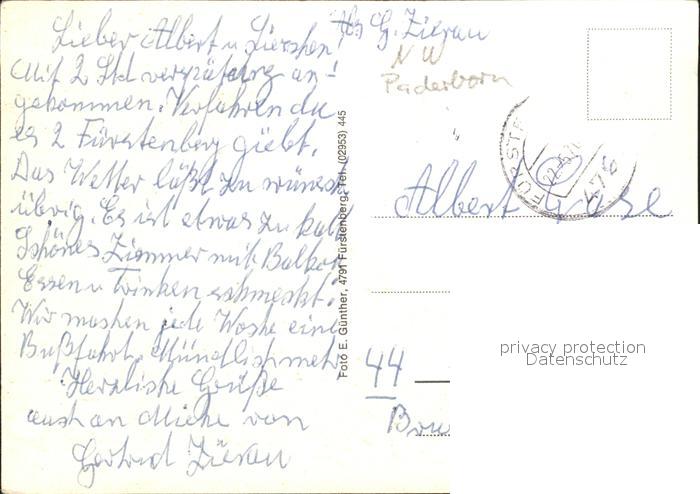 Lieber Albert u. Lieschen!
Mit 2 Std verspätung an-
gekommen. Verfahren da
es 2 Fürstenberg giebt.
Das Wetter läßt zu wünsch
übrig. Es ist etwas zu kalt
Schönes Zimmer mit Balkon
Essen u Trinken schmeckt.
Wir machen jede Woche eine
Busfahrt. Mündlich mehr
Herzliche Grüße
auch an Mieke von
Gertrud Zierau
Foto E. Günther, 4791 Fürstenberg, Tel. (02953) 445
G. Zierau
NW
Paderborn
FÜRSTE
Albert
44
privacy protection
Datenschutz